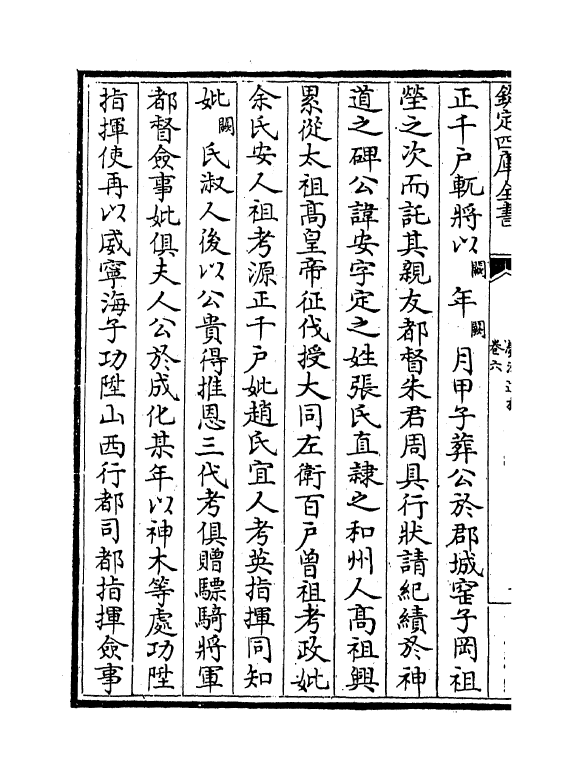 欽定四庫全書
卷六
正千户軏將以闕年闕月甲子葬公於郡城窑子岡祖
塋之次而託其親友都督朱君周具行狀請紀績於神
道之碑公諱安字定之姓張氏直隷之和州人髙祖興
累從太祖髙皇帝征伐授大同左衛百户曾祖考政妣
余氏安人祖考源正千户妣趙氏宜人考英指揮同知
妣闕氏淑人後以公貴得推恩三代考俱贈驃騎將軍
都督僉事妣俱夫人公於成化某年以神木等處功陞
指揮使再以威寧海子功陞山西行都司都指揮僉事